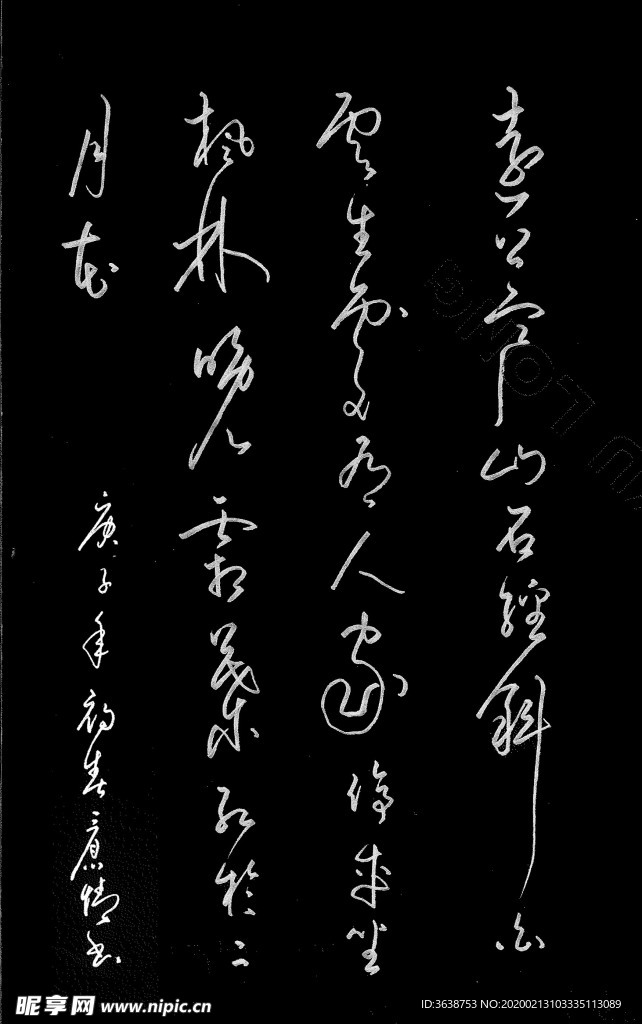 遠上寒山石經斜白
雲生處有人家停車坐
楓林晚霜葉紅於二
月花
庚子年初春意情书
昵享网 www.nipic.cn
ID:3638753 NO:20200213103335113089